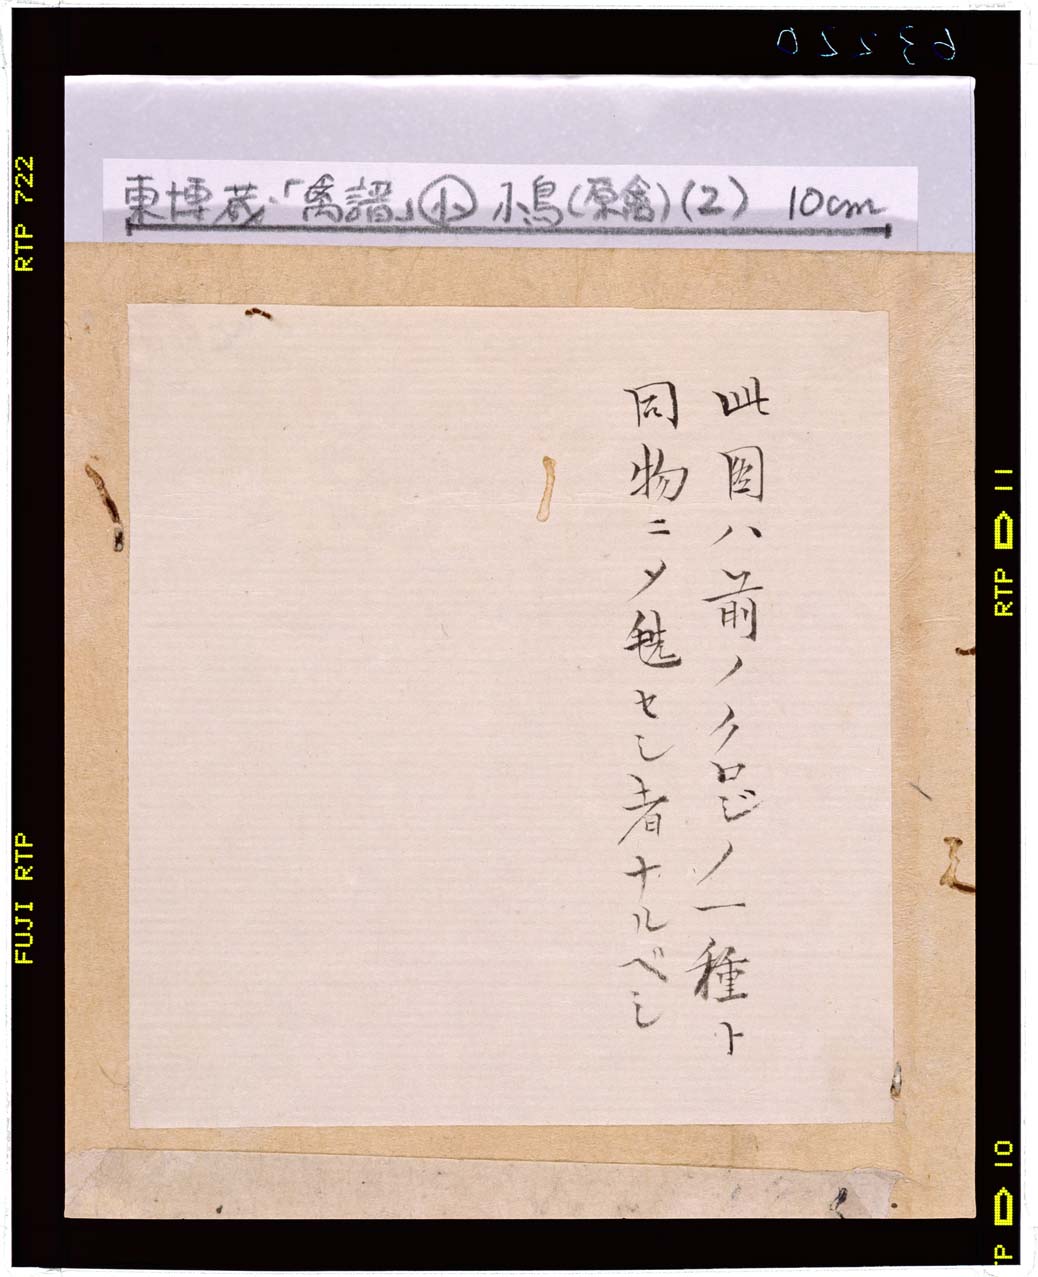 63220
東博蔵・「禽譜」㊦ 小鳥(原禽)(2) 10cm
此図ハ前ノクロジノ一種ト
同物ニ〆毨セシ者ナルベシ
RTP 722
FUJI RTP
RTP 11
10